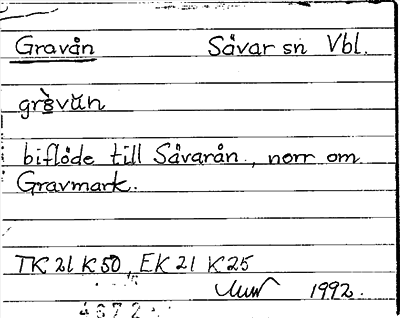 Gravån Sävar sn Vbl.
biflöde till Sävarån, norr om
Gravmark.
TK 21 K 50, EK 21 K 25
1992.